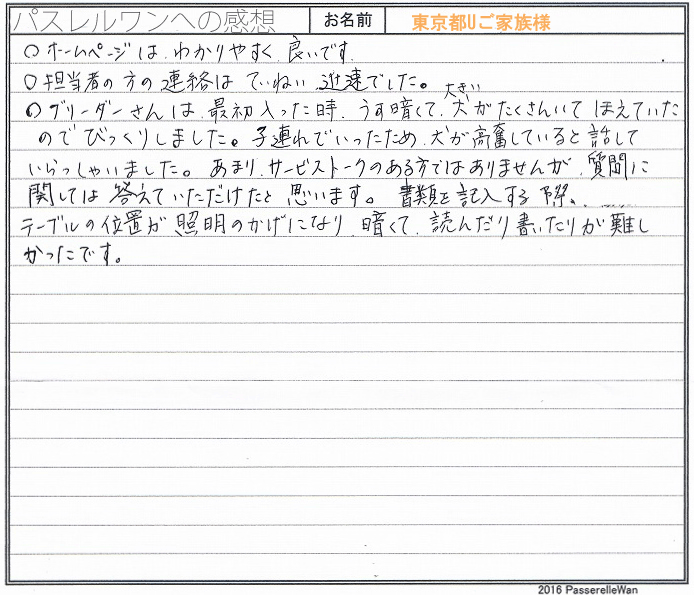 パスレルワンへの感想 お名前 東京都Uご家族様
○ ホームページは、わかりやすく、良いです。
○ 担当者の方の連絡は ていねい、迅速でした。
大きい
○ ブリーダーさんは、最初入った時、うす暗くて、犬がたくさんいて ほえていた
のでびっくりしました。子連れでいったため、犬が高奮していると話して
いらっしゃいました。あまり、サービストークのある方ではありませんが、質問に
関しては 答えていただけたと 思います。書類を記入する際、
テーブルの位置が 照明のかげになり、暗くて、読んだり書いたりが難し
かったです。
2016 PasserelleWan